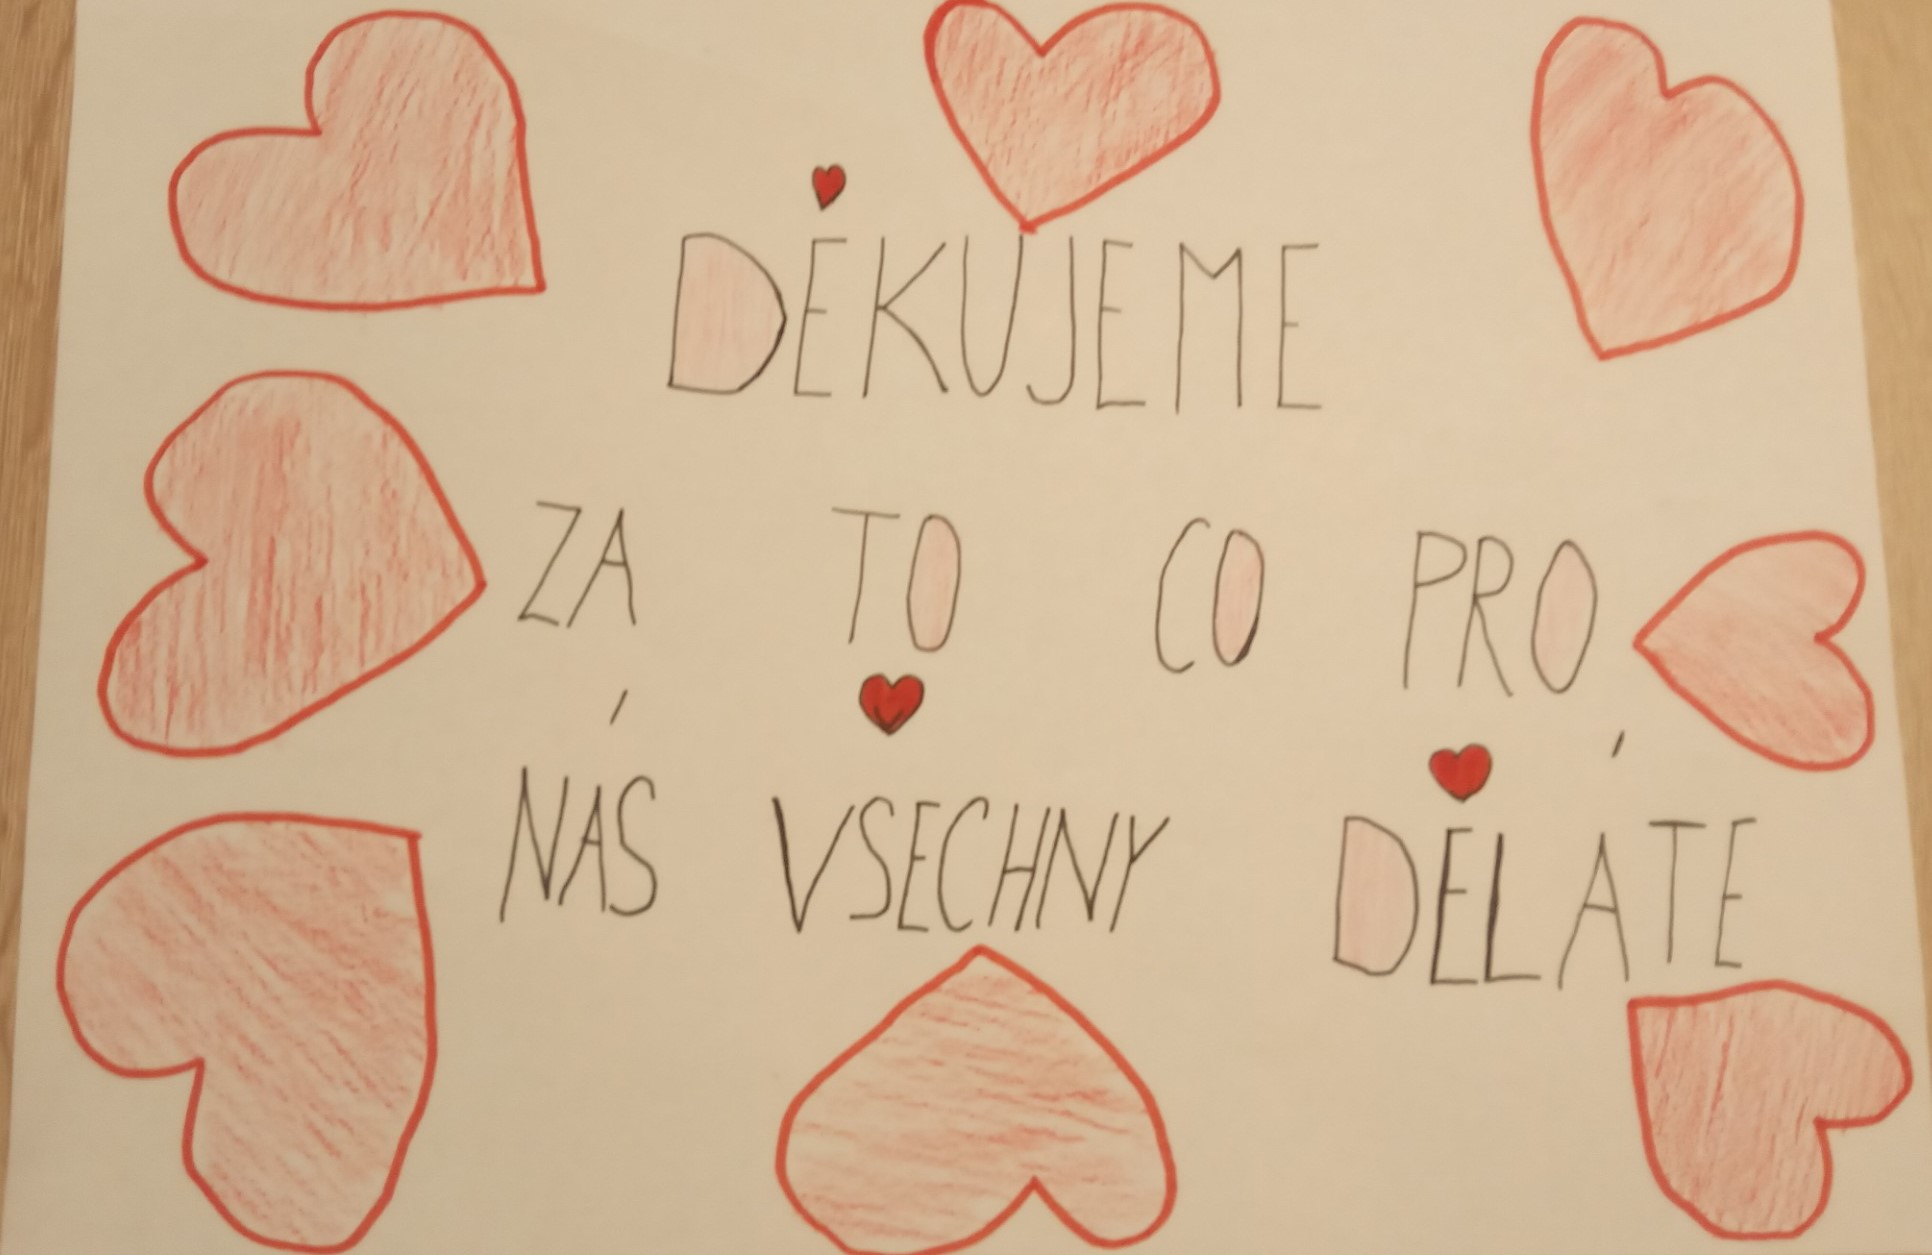 DĚKUJEME
ZA TO CO PRO
NÁS VŠECHNY DĚLÁTE